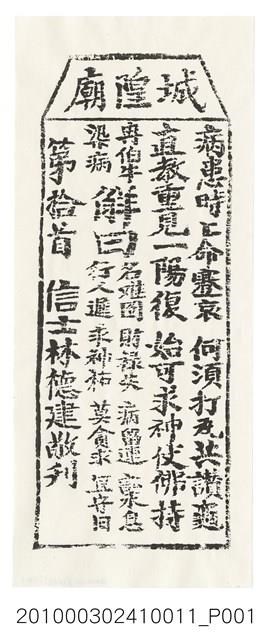 城隍廟
病患時亡命蹇哀 何須打瓦共讚龜
直教重見一陽復 始可求神仗佛持
冉伯牛
染病
解曰
名難圖 財祿失 病留連 息
行人遲 求神祐 莫貪求 宜守旧
第拾首 信士林德建敬刋
201000302410011_P001